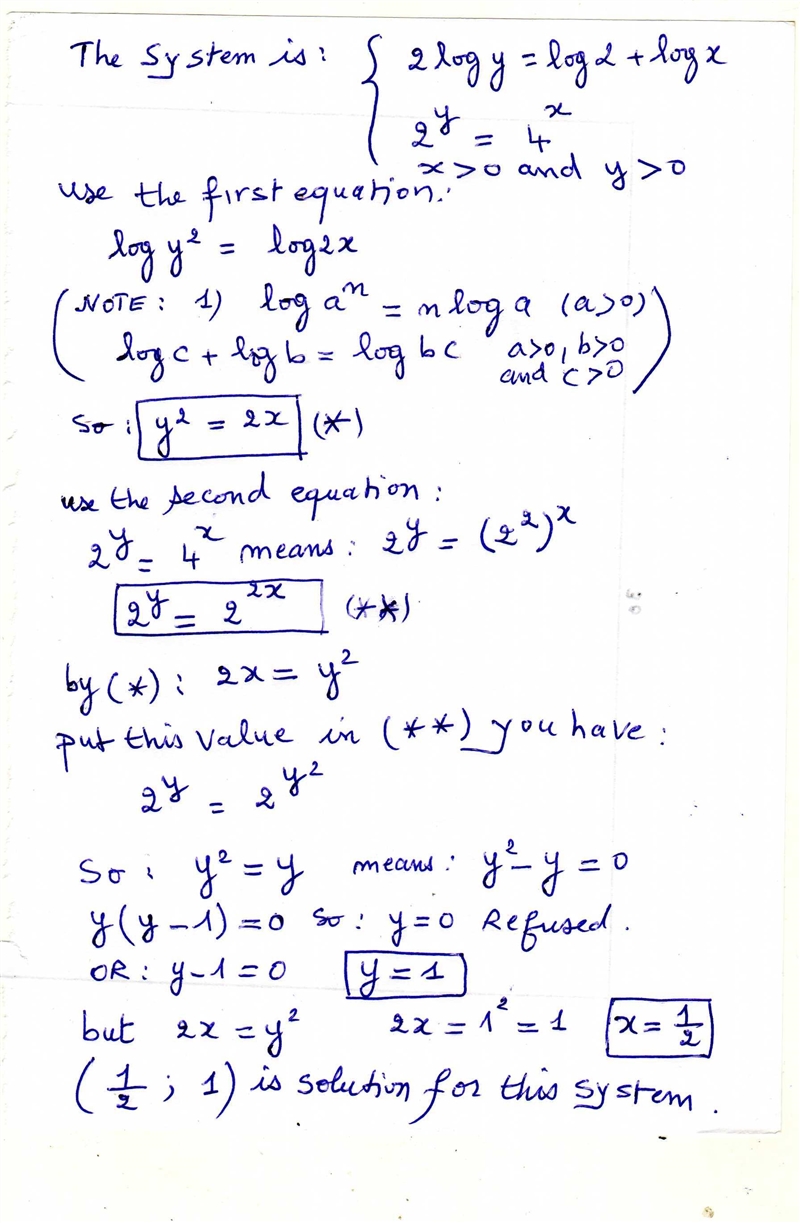 The System is: { 2 log y = log 2 + log x
2^y = 4^x
x > 0 and y > 0
use the first equation:
log y² = log 2x
(NOTE: 1) log aⁿ = n log a (a>0)
log c + log b = log bc a>0, b>0
and c>0)
So: y² = 2x (*)
use the second equation:
2^y = 4^x means: 2^y = (2²)^x
2^y = 2^2x (**)
by (*): 2x = y²
put this value in (**) you have:
2^y = 2^y²
So: y² = y means: y² - y = 0
y(y-1) = 0 So: y = 0 Refused.
OR: y-1 = 0 y = 1
but 2x = y² 2x = 1² = 1 x = 1/2
(1/2 ; 1) is solution for this system.